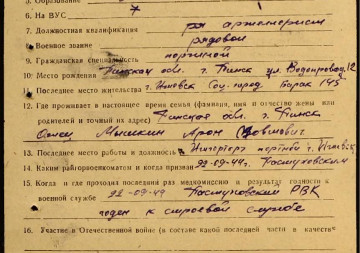 5. Образование
6. На ВУС 7
7. Должностная квалификация
8. Военное звание рядовой
9. Гражданская специальность портной
10. Место рождения Пинская обл. г. Пинск ул. Водопроводная, 12
11. Последнее место жительства г. Ижевск Соц. город. Барак 145
12. Где проживает в настоящее время семья (фамилия, имя и отчество жены или
родителей и точный их адрес) Пинская обл. г. Пинск
Отец Мышкин Арон
13. Последнее место работы и должность портной г. Ижевск
14. Каким райгорвоенкоматом и когда призван 22-09-44г. Пастуховским
15. Когда и где проходил последний раз медкомиссию и результат годности к
военной службе 22-09-44 Пастуховский РВК
годен к строевой службе
16. Участие в Отечественной войне (в составе какой последней части в качеств